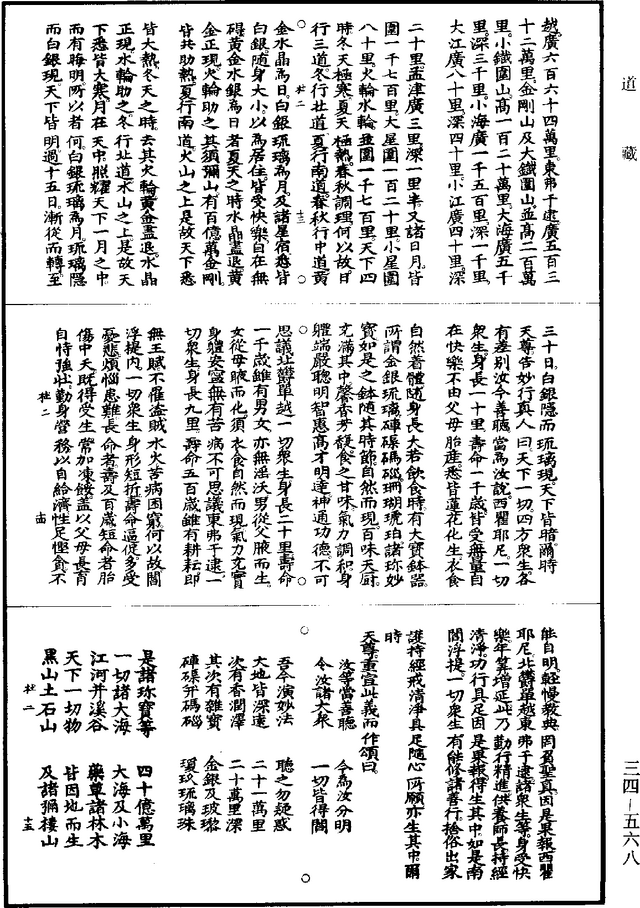 道藏
越廣六百六十四萬里東弗于逮廣五百三
十二萬里金剛山及大鐵圍山並高二百萬
里小鐵圍山高一百二十萬里大海廣五千
里深三千里小海廣一千五百里深一千里
大江廣八十里深四十里小江廣四十里深
二十里孟津廣三里深一里半又諸日月皆
圍一千七百里大星圍一百二十里小星圍
八十里火輪水輪並圍一千七百里天下四
時冬天極寒夏天極熱春秋調理何以故日
行三道冬行北道夏行南道春秋行中道黃
杜二
十三
金水晶為日白銀琉璃為月及諸星宿悉皆
白銀隨身大小以為居住皆受快樂自在無
礙黃金水銀為日者夏天之時水晶盡退黃
金正現火輪助之其須彌山有百億萬金剛
皆共助熱夏行南道火山之上是故天下悉
皆大熱冬天之時去其火輪黃金盡退水晶
正現水輪助之冬行北道冰山之上是故天
下悉皆大寒月在天中照耀天下一月之中
而有晦明所以者何白銀琉璃為月琉璃隱
而白銀現天下皆明過十五日漸從而轉至
三十日白銀隱而琉璃現天下皆暗爾時
天尊告妙行真人曰天下一切四方眾生各
有差別汝今善聽當為汝說西瞿耶尼一切
眾生身長一十里壽命一千歲皆受無量自
在快樂不由父母胎產悉皆蓮花化生衣食
自然著體隨身長大若飲食時有大寶缽器
所謂金銀琉璃硨磲碼碯珊瑚琥珀諸珎妙
寶如是之缽隨其時節自然而現百味天廚
充滿其中馨香芬馥食之甘味氣力調和身
軀端嚴聰明智惠高才明達神通功德不可
思議北鬱單越一切眾生身長二十里壽命
一千歲雖有男女亦無淫泆男從父腋而生
女從母腋而化須衣食自然而現氣力充實
身軀安寧無有苦病不可思議東弗于逮一
切眾生身長九里壽命五百歲雖有耕耘即
無王賊不罹盜賊水火苦病困窮何以故閻
浮提內一切眾生身形短折壽命逼促多受
憂悲煩惱患難長命者壽及百歲短命者胎
傷中夭既得受生常加凍餒蓋以父母長育
自恃強壯勤身營務以自給濟性足慳貪不
杜二
十四
能自明輕慢教典罔眞聖真因是果報西瞿
耶尼北鬱單越東弗于逮諸眾生等身受快
樂年筭增延此乃勤行精進供養師長持經
清淨功行具足因是果報得生其中如是南
閻浮提一切眾生有能修諸善行捨俗出家
護持經戒清淨具足隨心所願亦生其中爾
時
天尊重宣此義而作頌曰
汝等當善聽　今為汝分明
令汝諸大眾　一切皆得聞
吾今演妙法　聽之勿疑惑
大地皆深遠　二十一萬里
次有香潤澤　二十萬里深
其次有雜寶　金銀及玻瓈
硨磲并碼碯　瓊玖琉璃珠
是諸珎寶等　四十億萬里
一切諸大海　大海及小海
江河并溪谷　藥草諸林木
天下一切物　皆因地而生
黑山土石山　及諸彌樓山
杜二
十五
三四－五六八